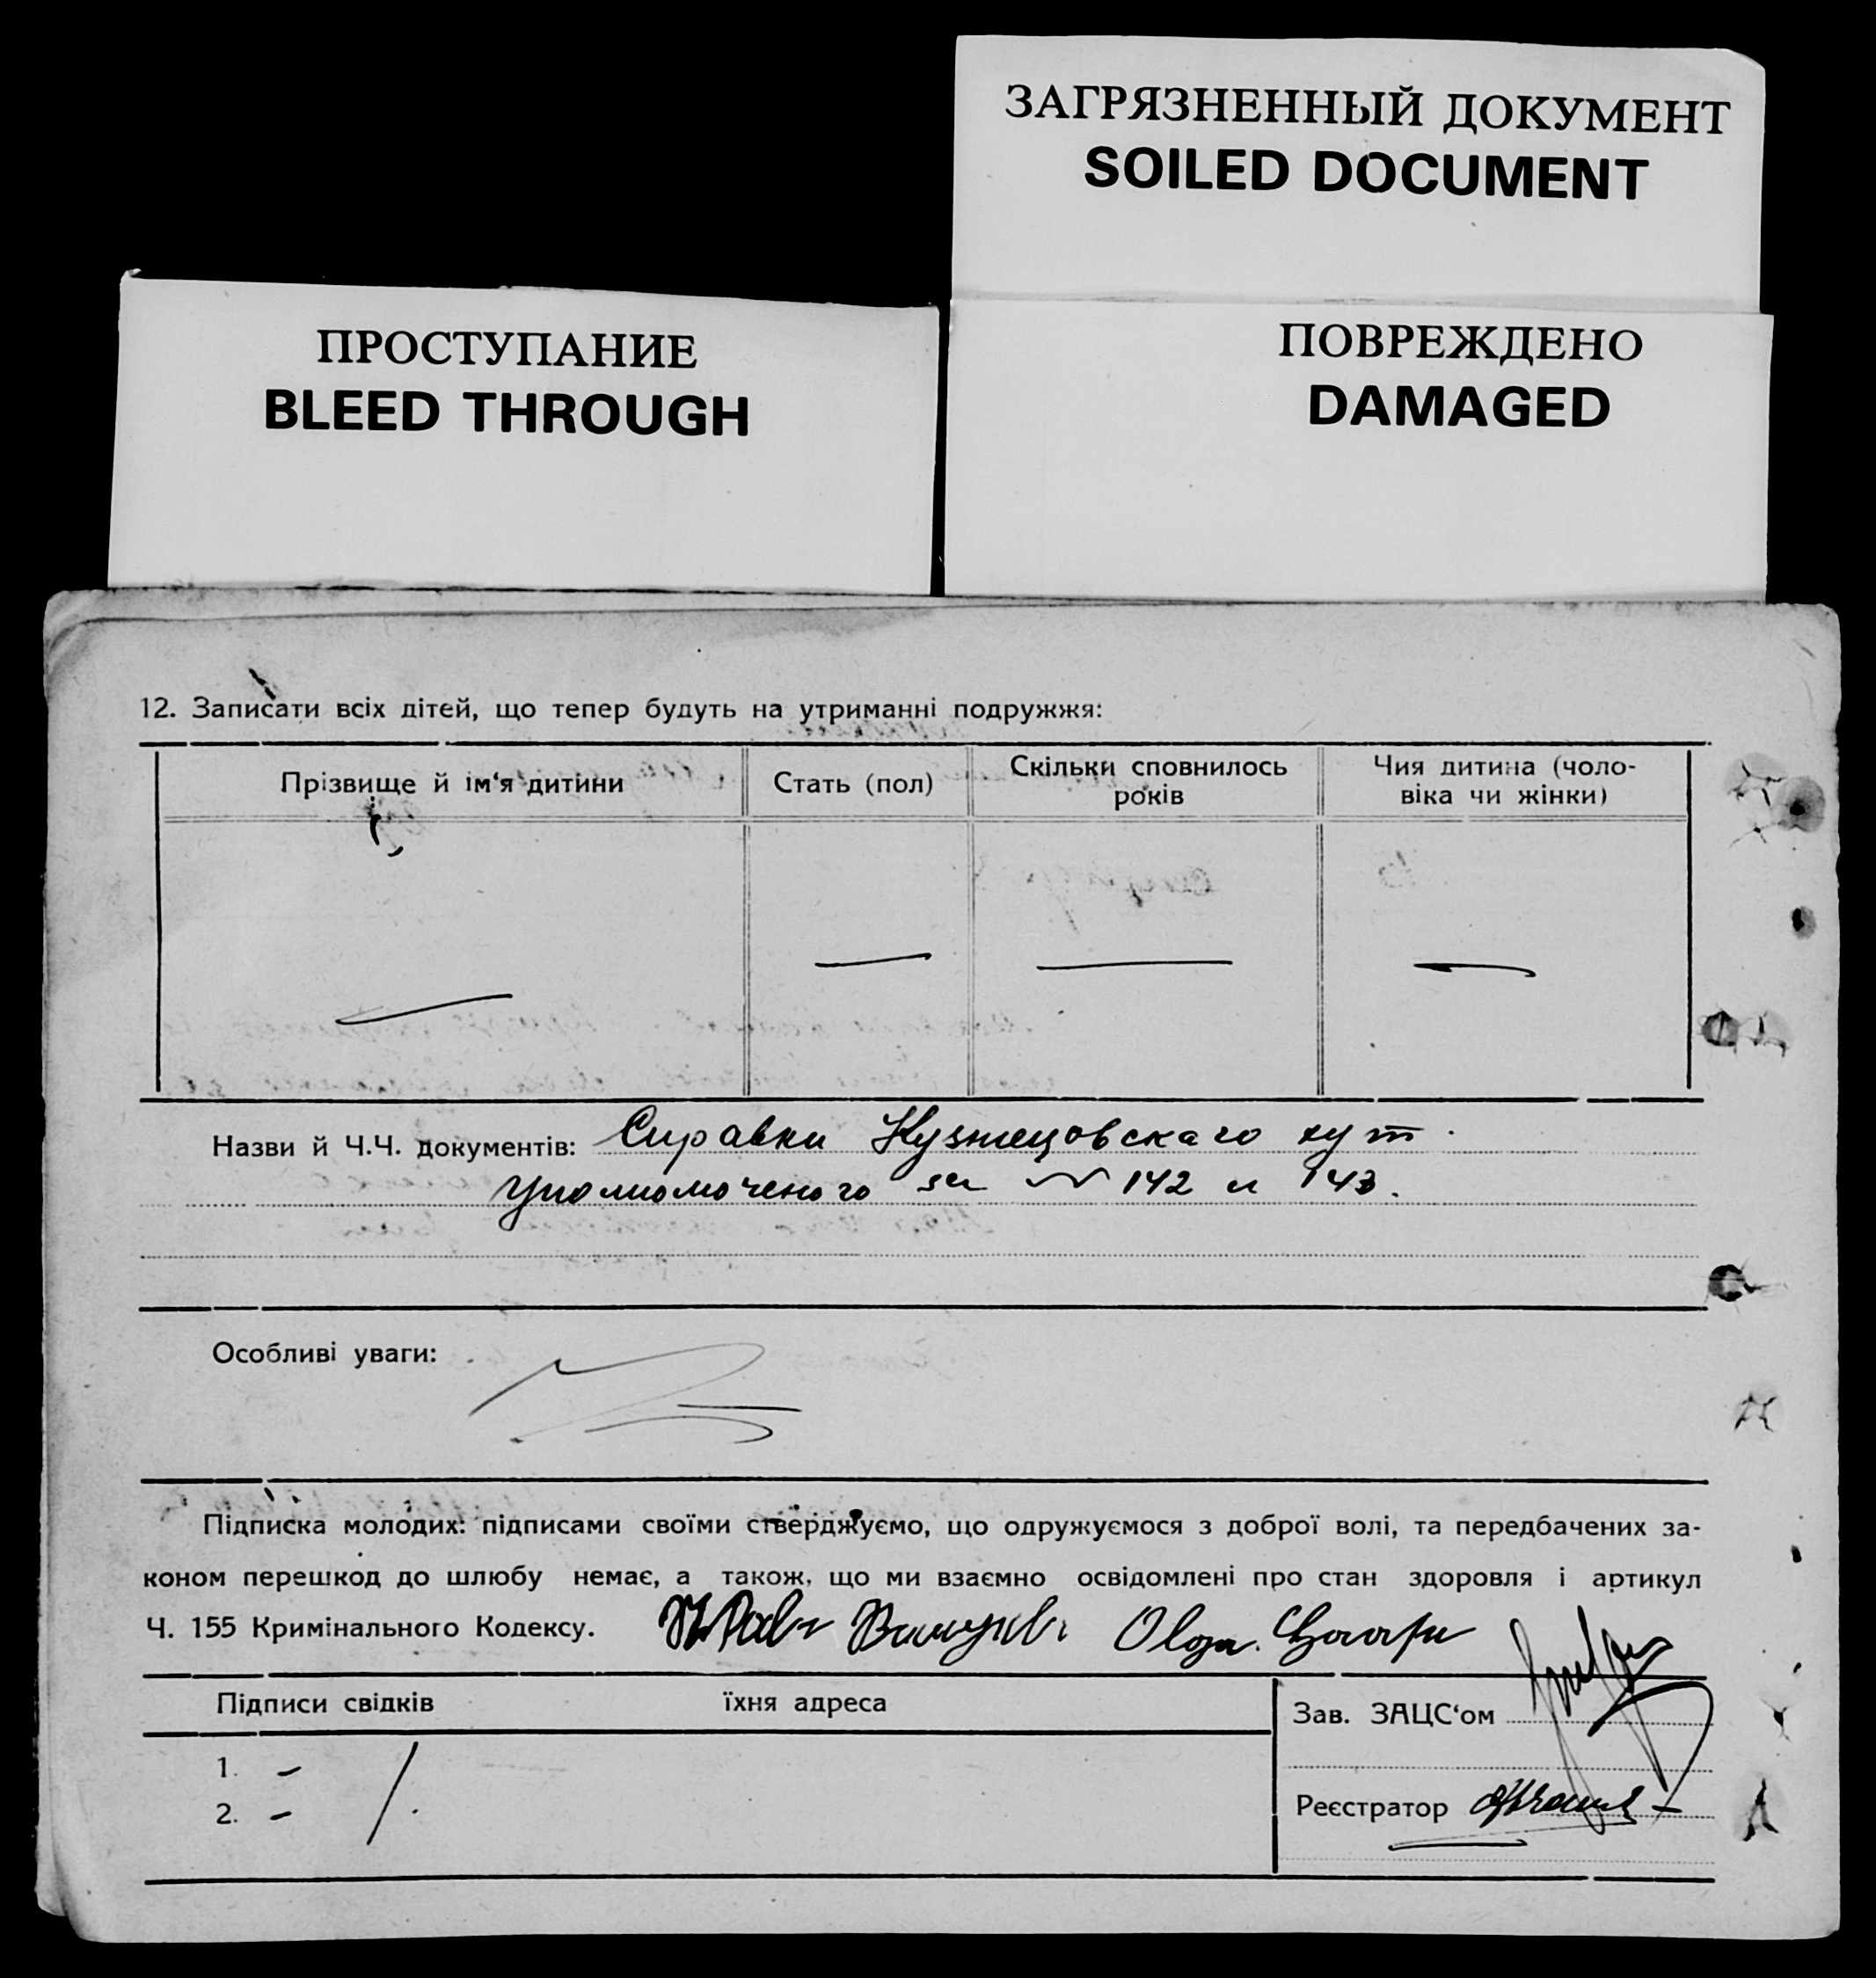 ЗАГРЯЗНЕННЫЙ ДОКУМЕНТ
SOILED DOCUMENT
ПРОСТУПАНИЕ
BLEED THROUGH
ПОВРЕЖДЕНО
DAMAGED
12. Записати всіх дітей, що тепер будуть на утриманні подружжя:
Прізвище й ім'я дитини
Стать (пол)
Скільки сповнилось
років
Чия дитина (чоло-
віка чи жінки)
Назви й Ч.Ч. документів: Справки Кузнецовскаго хут.
Уполномоченого за № 142 и 143.
Особливі уваги:
Підписка молодих: підписами своїми стверджуємо, що одружуємося з доброї волі, та передбачених за-
коном перешкод до шлюбу немає, а також, що ми взаємно освідомлені про стан здоровля і артикул
Ч. 155 Кримінального Кодексу. Olga
Підписи свідків їхня адреса
Зав. ЗАЦС'ом
1. -
2. -
Реєстратор